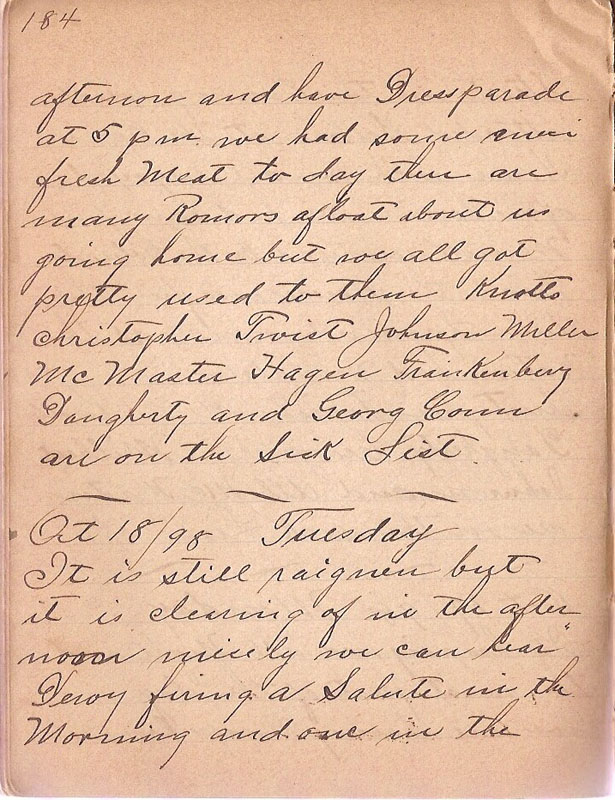 184
afternon and have Dressparade
at 5 pm. we had some
fresh Meat to day ther are
many Romors afloat about us
going home but we all got
pretty used to them Knotts
christopher Twist Johnson Miller
Mc Master Hagen Frankenberg
Daugherty and Georg Conn
are on the Sick List.
Oct 18/98 Tuesday
It is still raignen but
it is clearing of in the after
noon nicely we can hear
Dewy firing a Salute in the
Morning and one in the